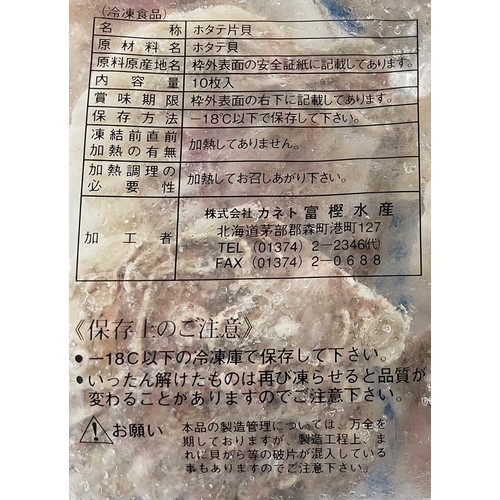 (冷凍食品)
名称 ホタテ片貝
原材料名 ホタテ貝
原料原産地名 枠外表面の安全証紙に記載してあります。
内容量 10枚入
賞味期限 枠外表面の右下に記載してあります。
保存方法 −18℃以下で保存して下さい。
凍結前直前
加熱の有無 加熱してありません。
加熱調理の
必要性 加熱してお召しあがり下さい。
加工者 株式会社 カネト 富樫水産
北海道茅部郡森町港町127
TEL (01374) 2−2346(代)
FAX (01374) 2−0688
《保存上のご注意》
●−18℃以下の冷凍庫で保存して下さい。
●いったん解けたものは再び凍らせると品質が
変わることがありますのでご注意下さい。
お願い 本品の製造管理については、万全を
期しておりますが、製造工程上、ま
れに貝がら等の破片が混入している
事もありますのでご注意下さい。